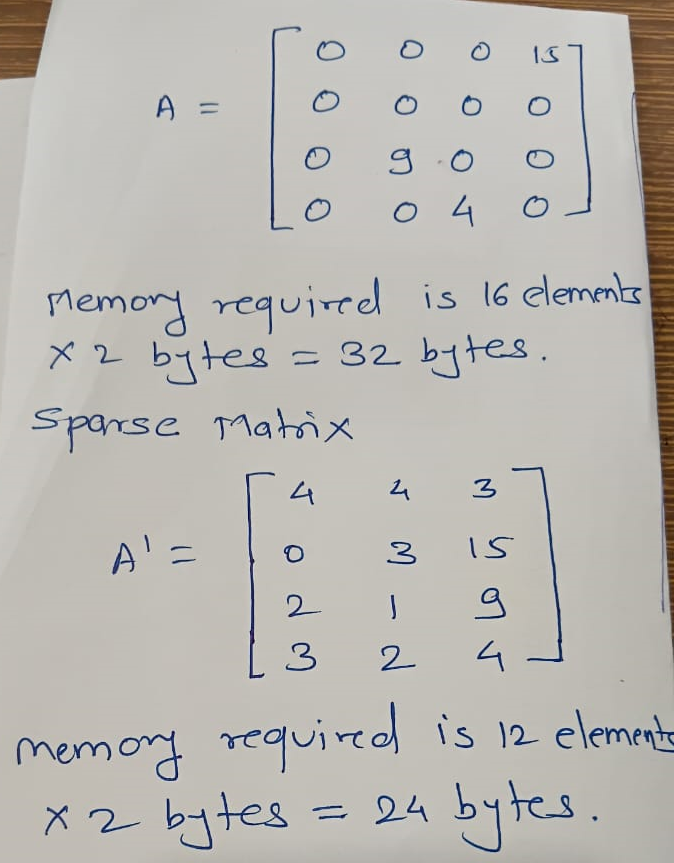 0 0 0 15
A = 0 0 0 0
0 9 0 0
0 0 4 0
Memory required is 16 elements
x 2 bytes = 32 bytes.
Sparse Matrix
4 4 3
A' = 0 3 15
2 1 9
3 2 4
memory required is 12 elements
x 2 bytes = 24 bytes.